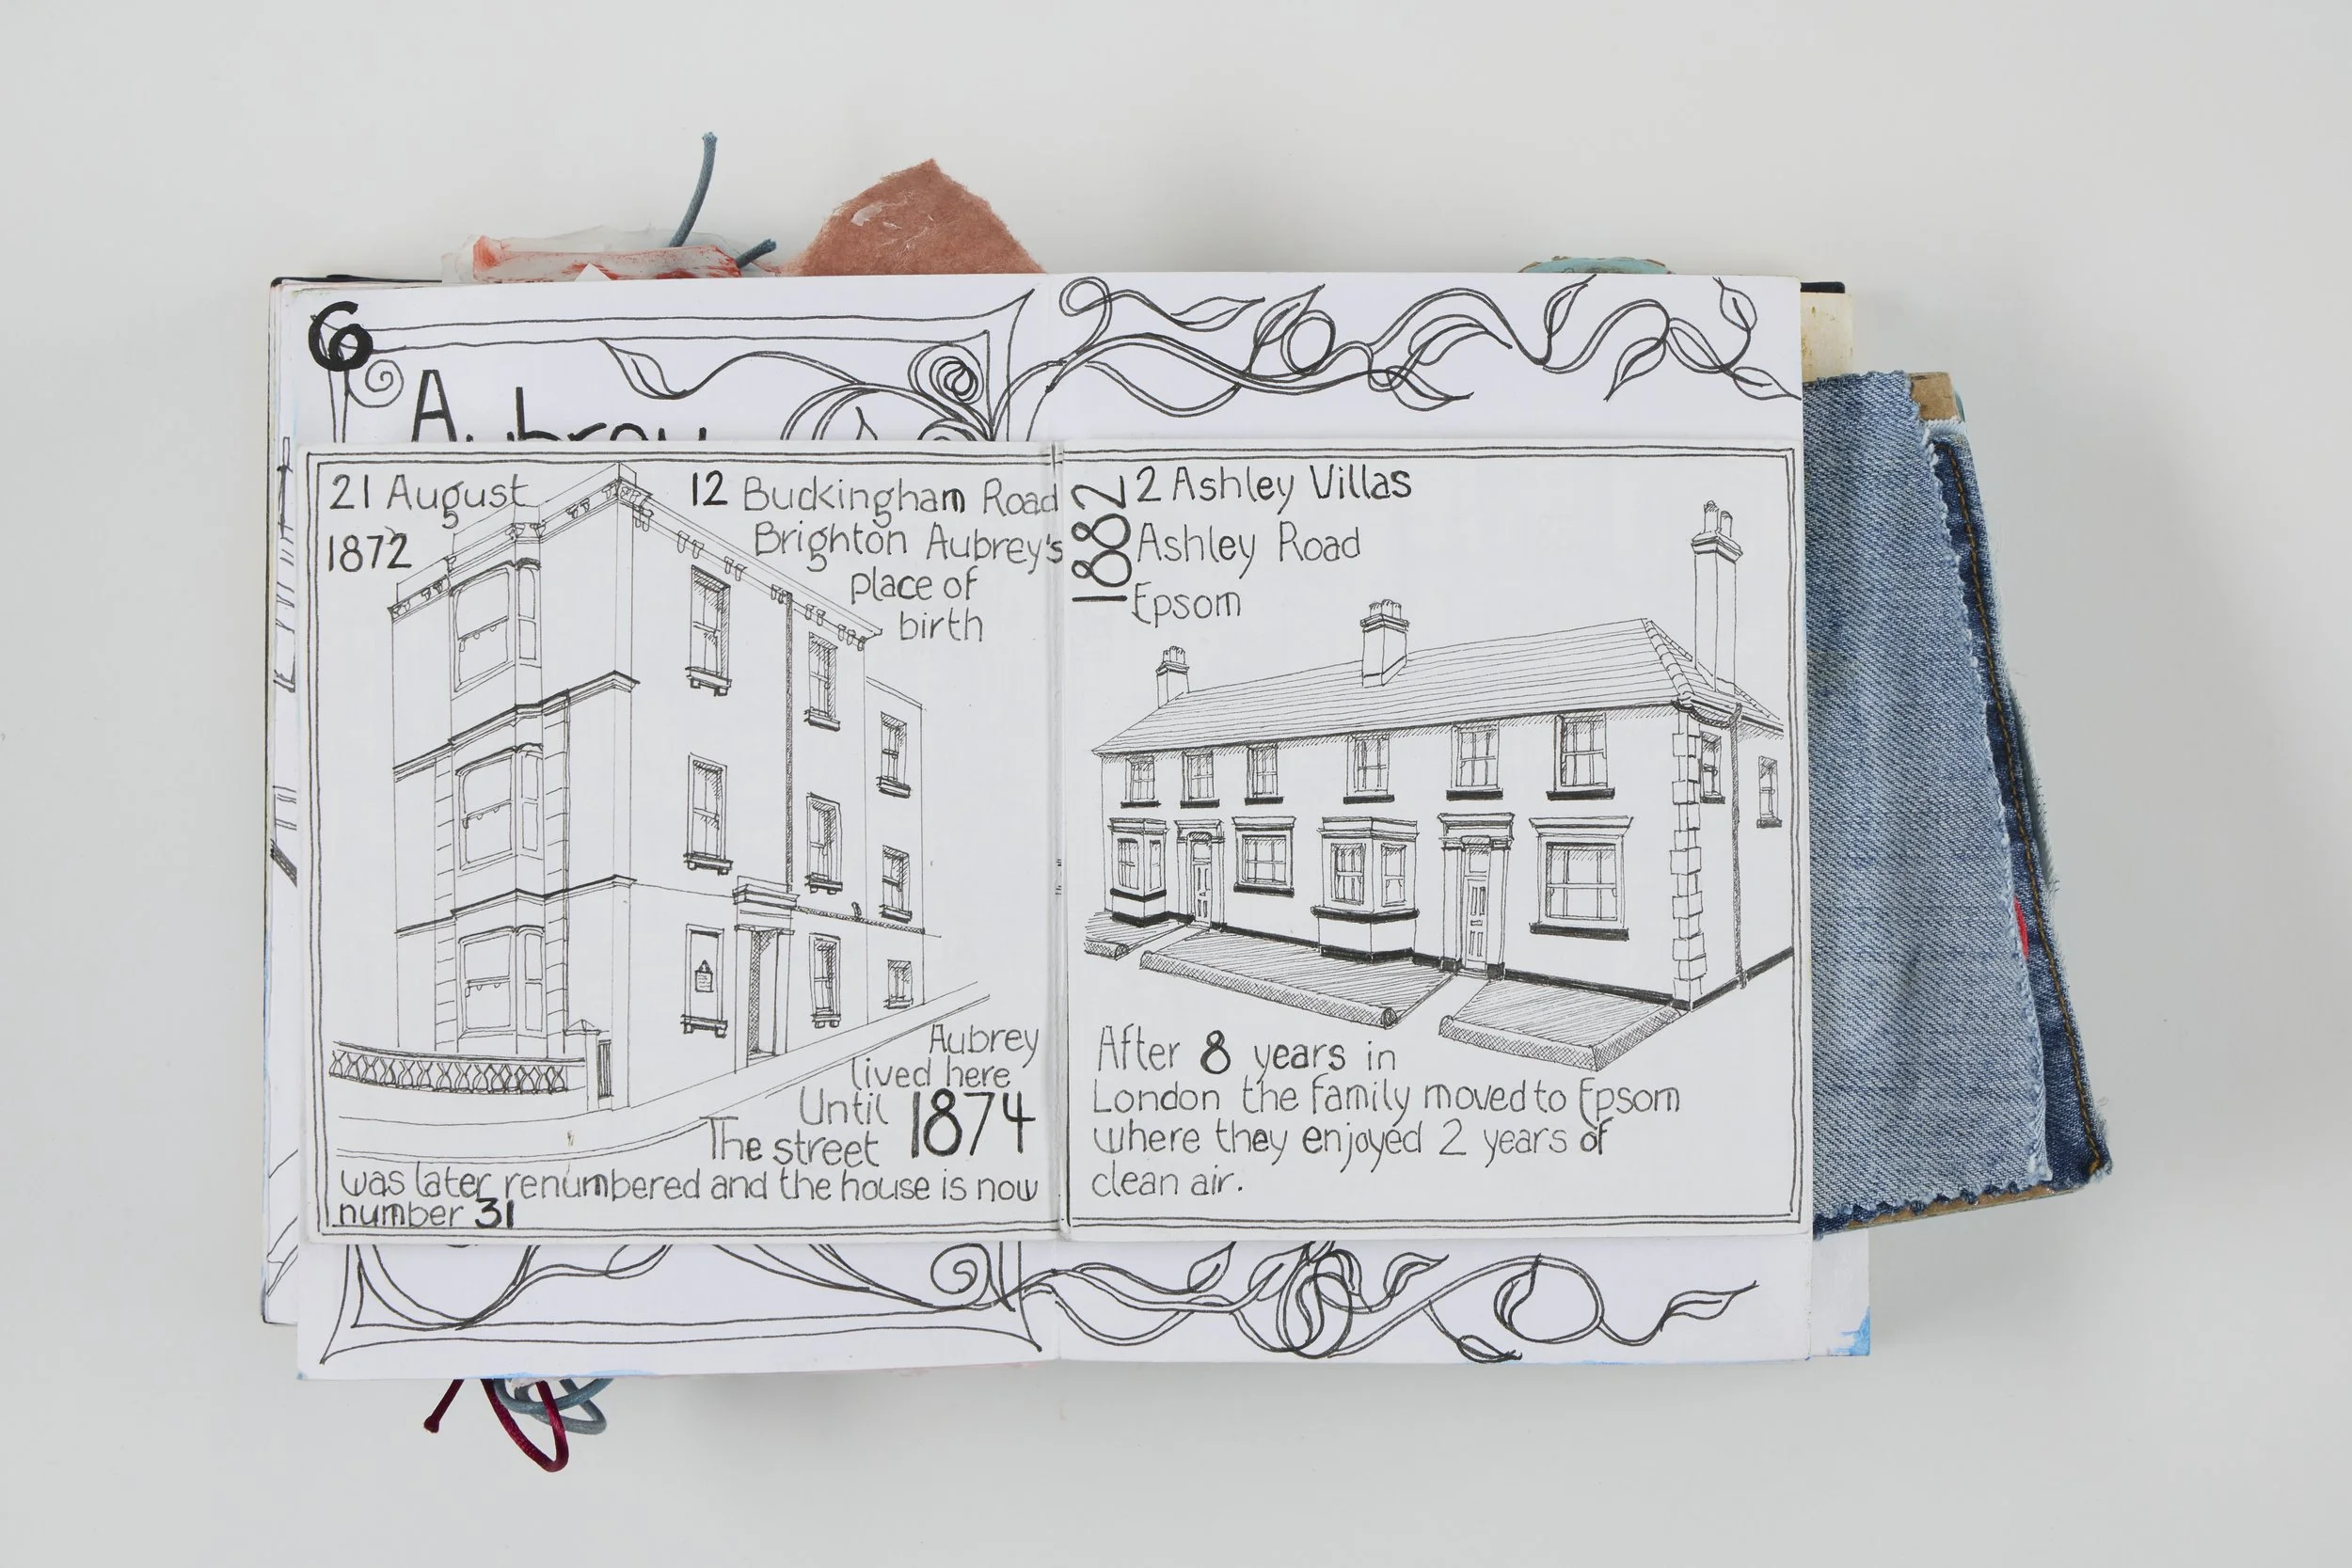 6
Aubrey
21 August
1872
12 Buckingham Road
Brighton Aubrey's
place of
birth
Aubrey
lived here
Until 1874
The street
was later renumbered and the house is now
number 31
1882
2 Ashley Villas
Ashley Road
Epsom
After 8 years in
London the family moved to Epsom
where they enjoyed 2 years of
clean air.